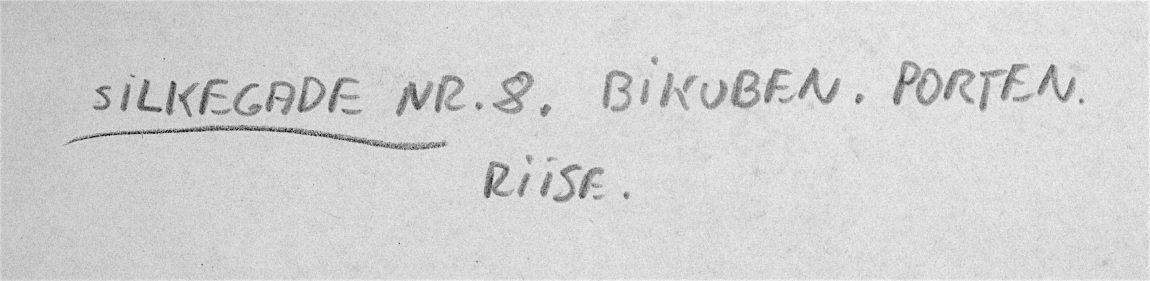 SiLKEGADE NR. 8. BiKUBEN. PORTEN.
RiiSE.